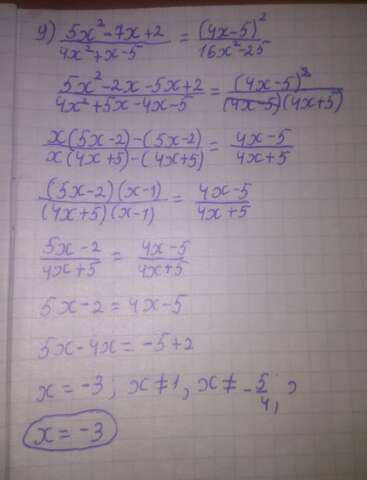 9) (5x² - 7x + 2)/(4x² + x - 5) = (4x - 5)²/(16x² - 25)
(5x² - 2x - 5x + 2)/(4x² + 5x - 4x - 5) = (4x - 5)²/((4x - 5)(4x + 5))
(x(5x - 2) - (5x - 2))/(x(4x + 5) - (4x + 5)) = (4x - 5)/(4x + 5)
((5x - 2)(x - 1))/((4x + 5)(x - 1)) = (4x - 5)/(4x + 5)
(5x - 2)/(4x + 5) = (4x - 5)/(4x + 5)
5x - 2 = 4x - 5
5x - 4x = -5 + 2
x = -3; x ≠ 1, x ≠ -5/4;
x = -3